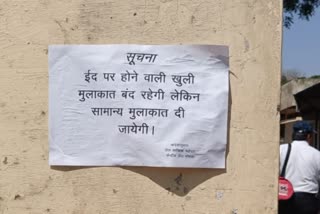 सूचना
ईद पर होने वाली खुली
मुलाकात बंद रहेगी लेकिन
सामान्य मुलाकात दी
जायेगी।